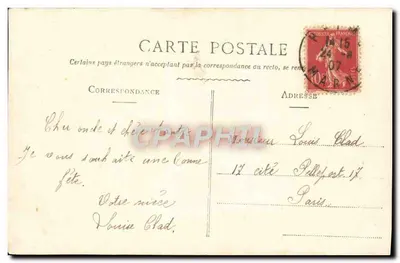 CARTE POSTALE
Certains pays étrangers n'acceptant pas la correspondance au recto, se ren
CORRESPONDANCE
ADRESSE
14 15
24
07
MARNE
CPARAMA
Cher oncle et chère tante
Je vous souhaite une bonne
fête.
Votre nièce
Louise Clad.
Monsieur Louis Clad
17 cité Pelleport 17
Paris.